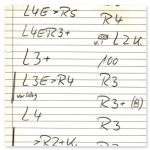 L4E>R5 R4
L4ER3+ v.1 L2K.
L3+ 100
L3E>R4 R3
R3+ (B)
L4 R3
>R2+K.